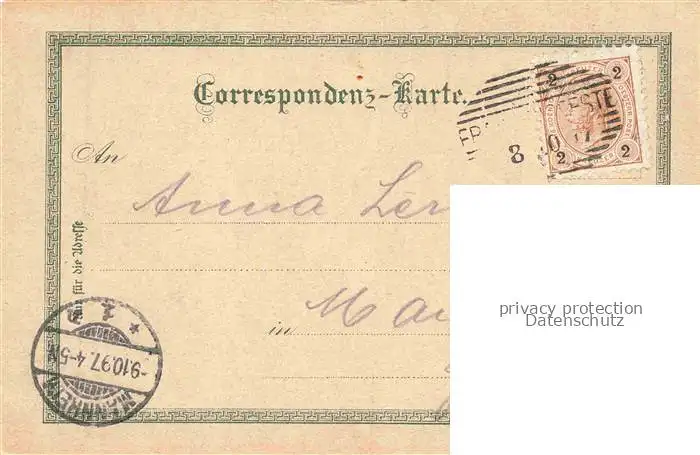 Correspondenz-Karte.
2 2
2 2
ESTE
8 10 97
An
Anna
Nur für die Adresse
in Ma
privacy protection
Datenschutz
MANNHEIM
1
-9.10.97. 4-5N